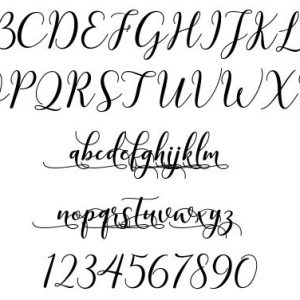 BCDEFGHIJKL
OPQRSTUVWX
abcdefghijklm
nopqrstuvwxyz
1234567890